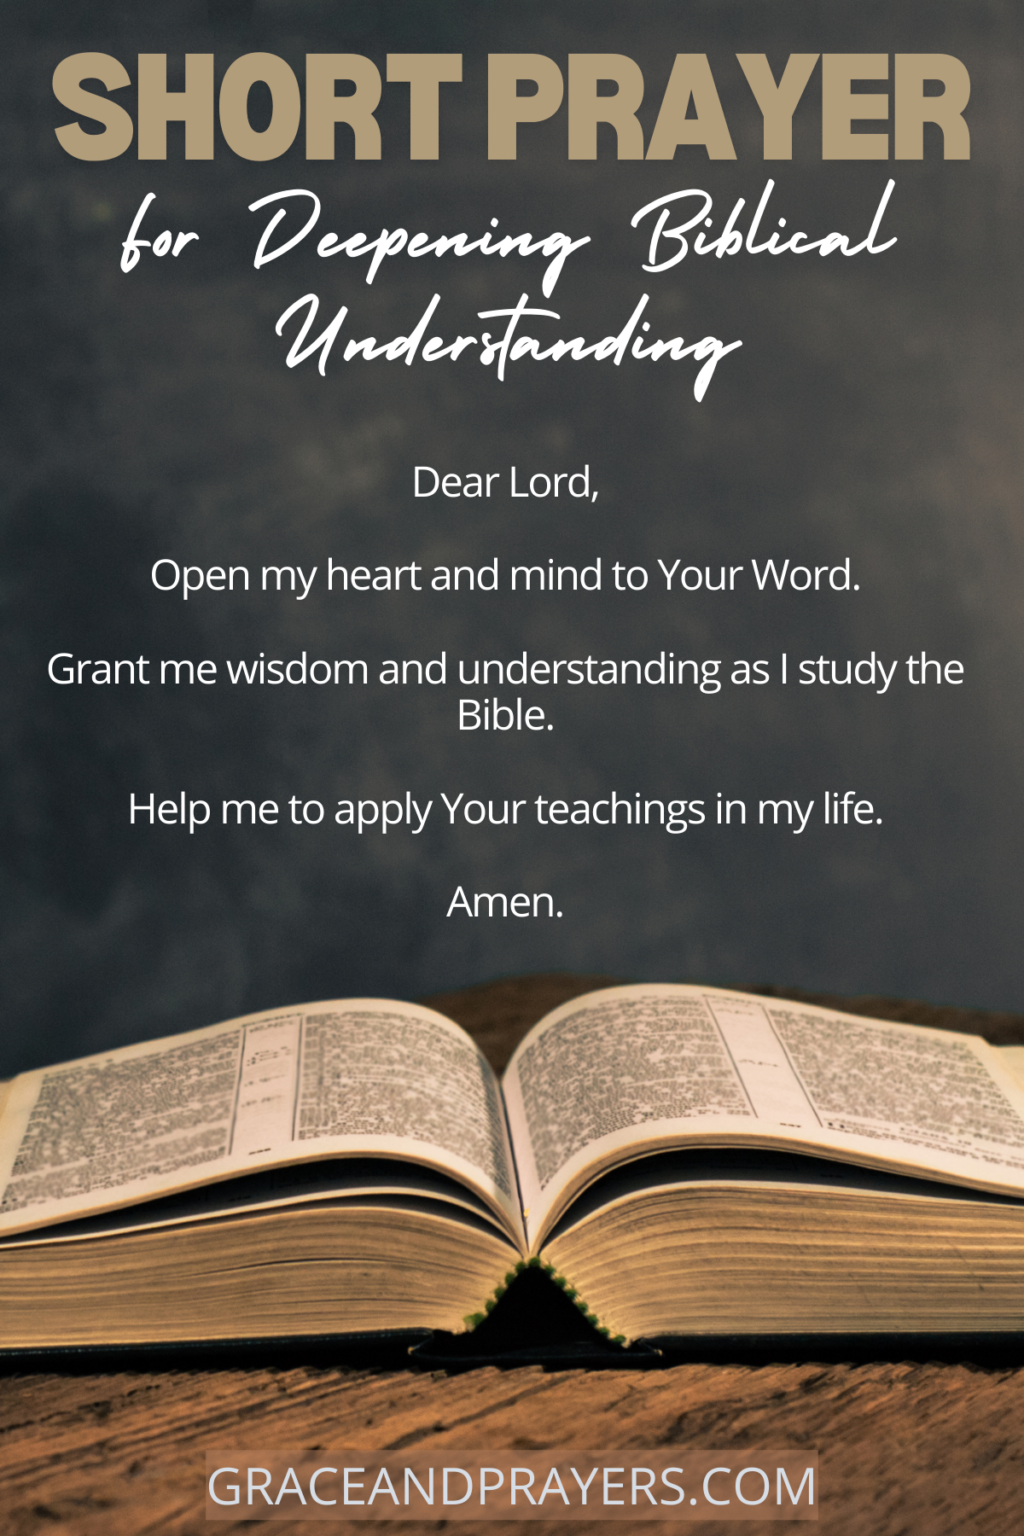 SHORT PRAYER
for Deepening Biblical
Understanding
Dear Lord,
Open my heart and mind to Your Word.
Grant me wisdom and understanding as I study the
Bible.
Help me to apply Your teachings in my life.
Amen.
GRACEANDPRAYERS.COM